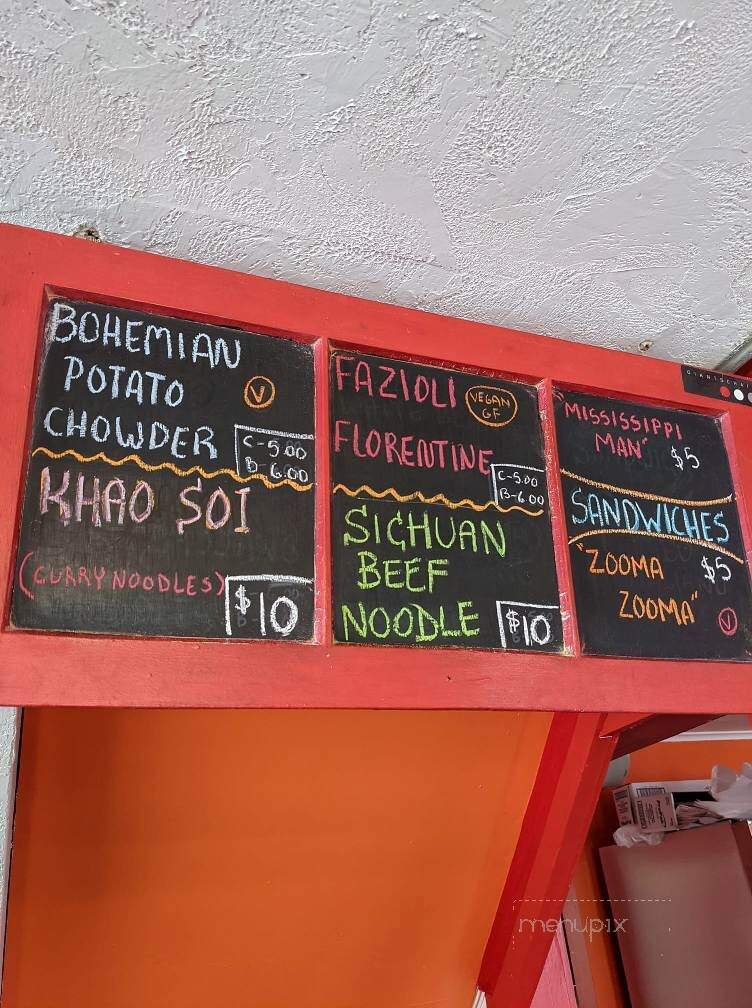 BOHEMIAN
POTATO V
CHOWDER
C-5.00
B-6.00
KHAO SOI
(CURRY NOODLES)
$10
FAZIOLI
VEGAN
GF
FLORENTINE
C-5.00
B-6.00
SICHUAN
BEEF
NOODLE $10
"MISSISSIPPI
MAN" $5
SANDWICHES
"ZOOMA $5
ZOOMA" V
menupix